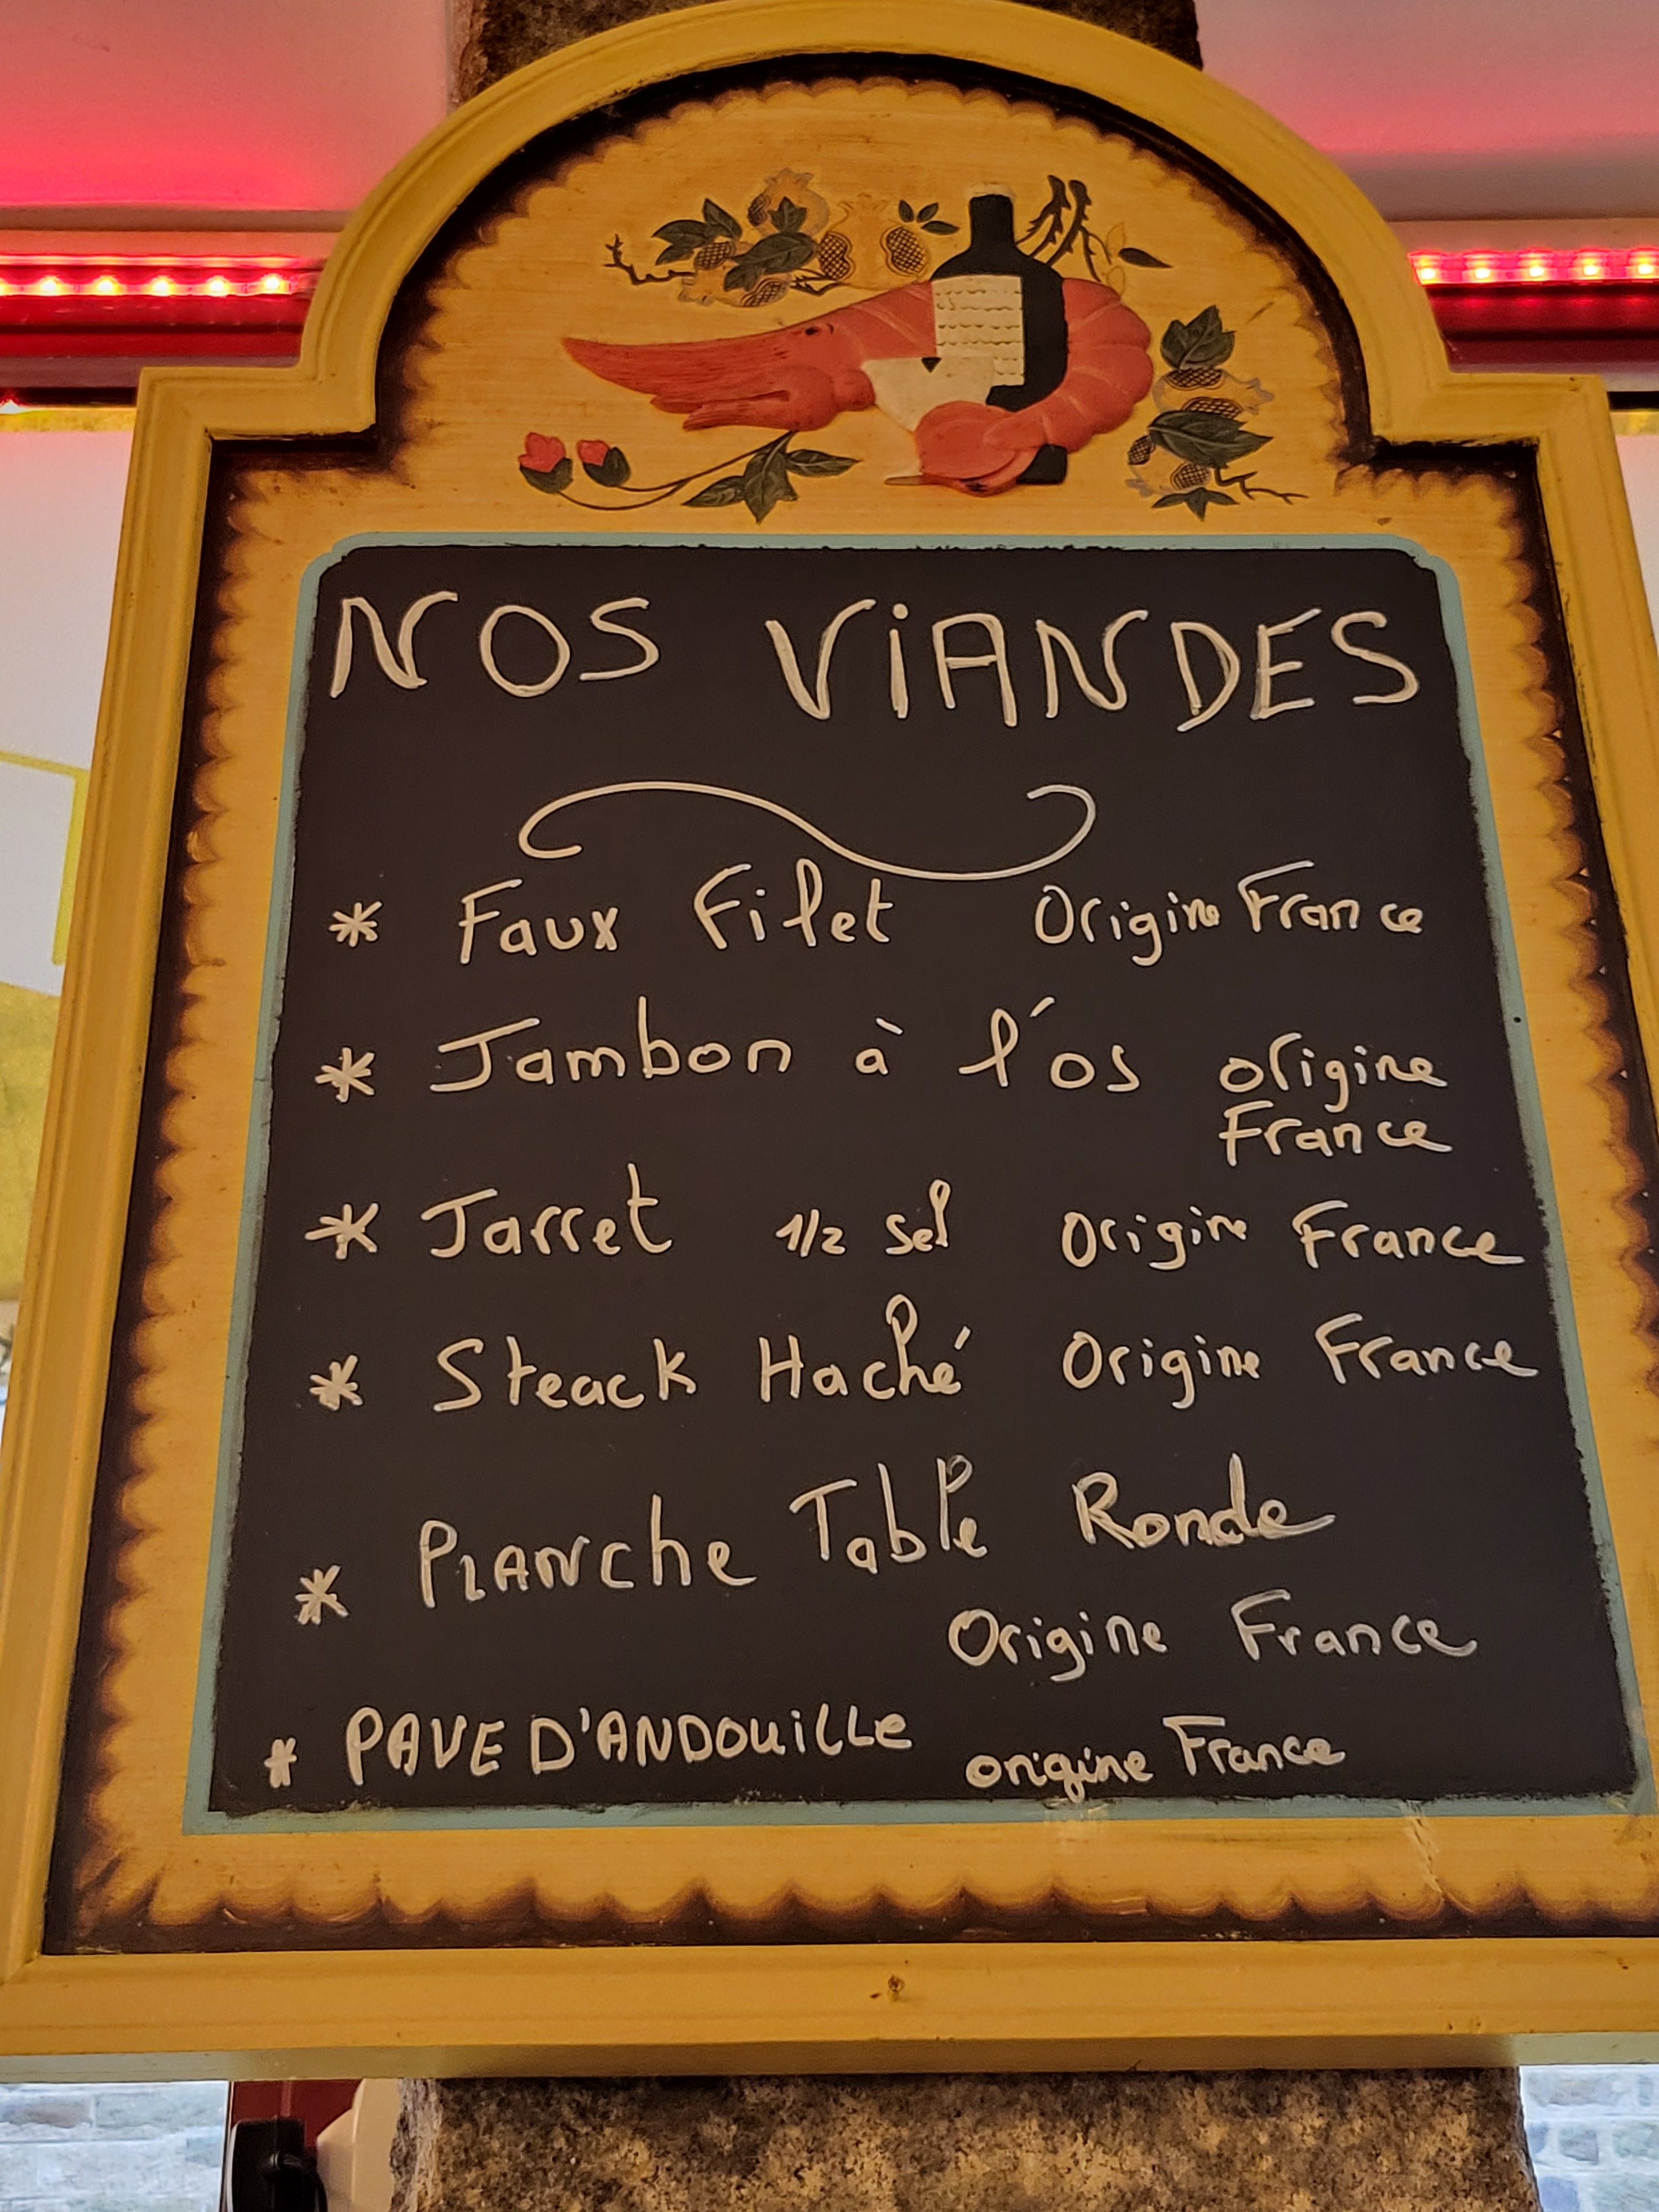 NOS ViANDES
* Faux Filet Origine France
* Jambon à l'os origine
France
* Jarret 1/2 sel Origine France
* Steack Haché Origine France
* PLANche Table Ronde
Origine France
* PAVE D'ANDOuiLLe origine France